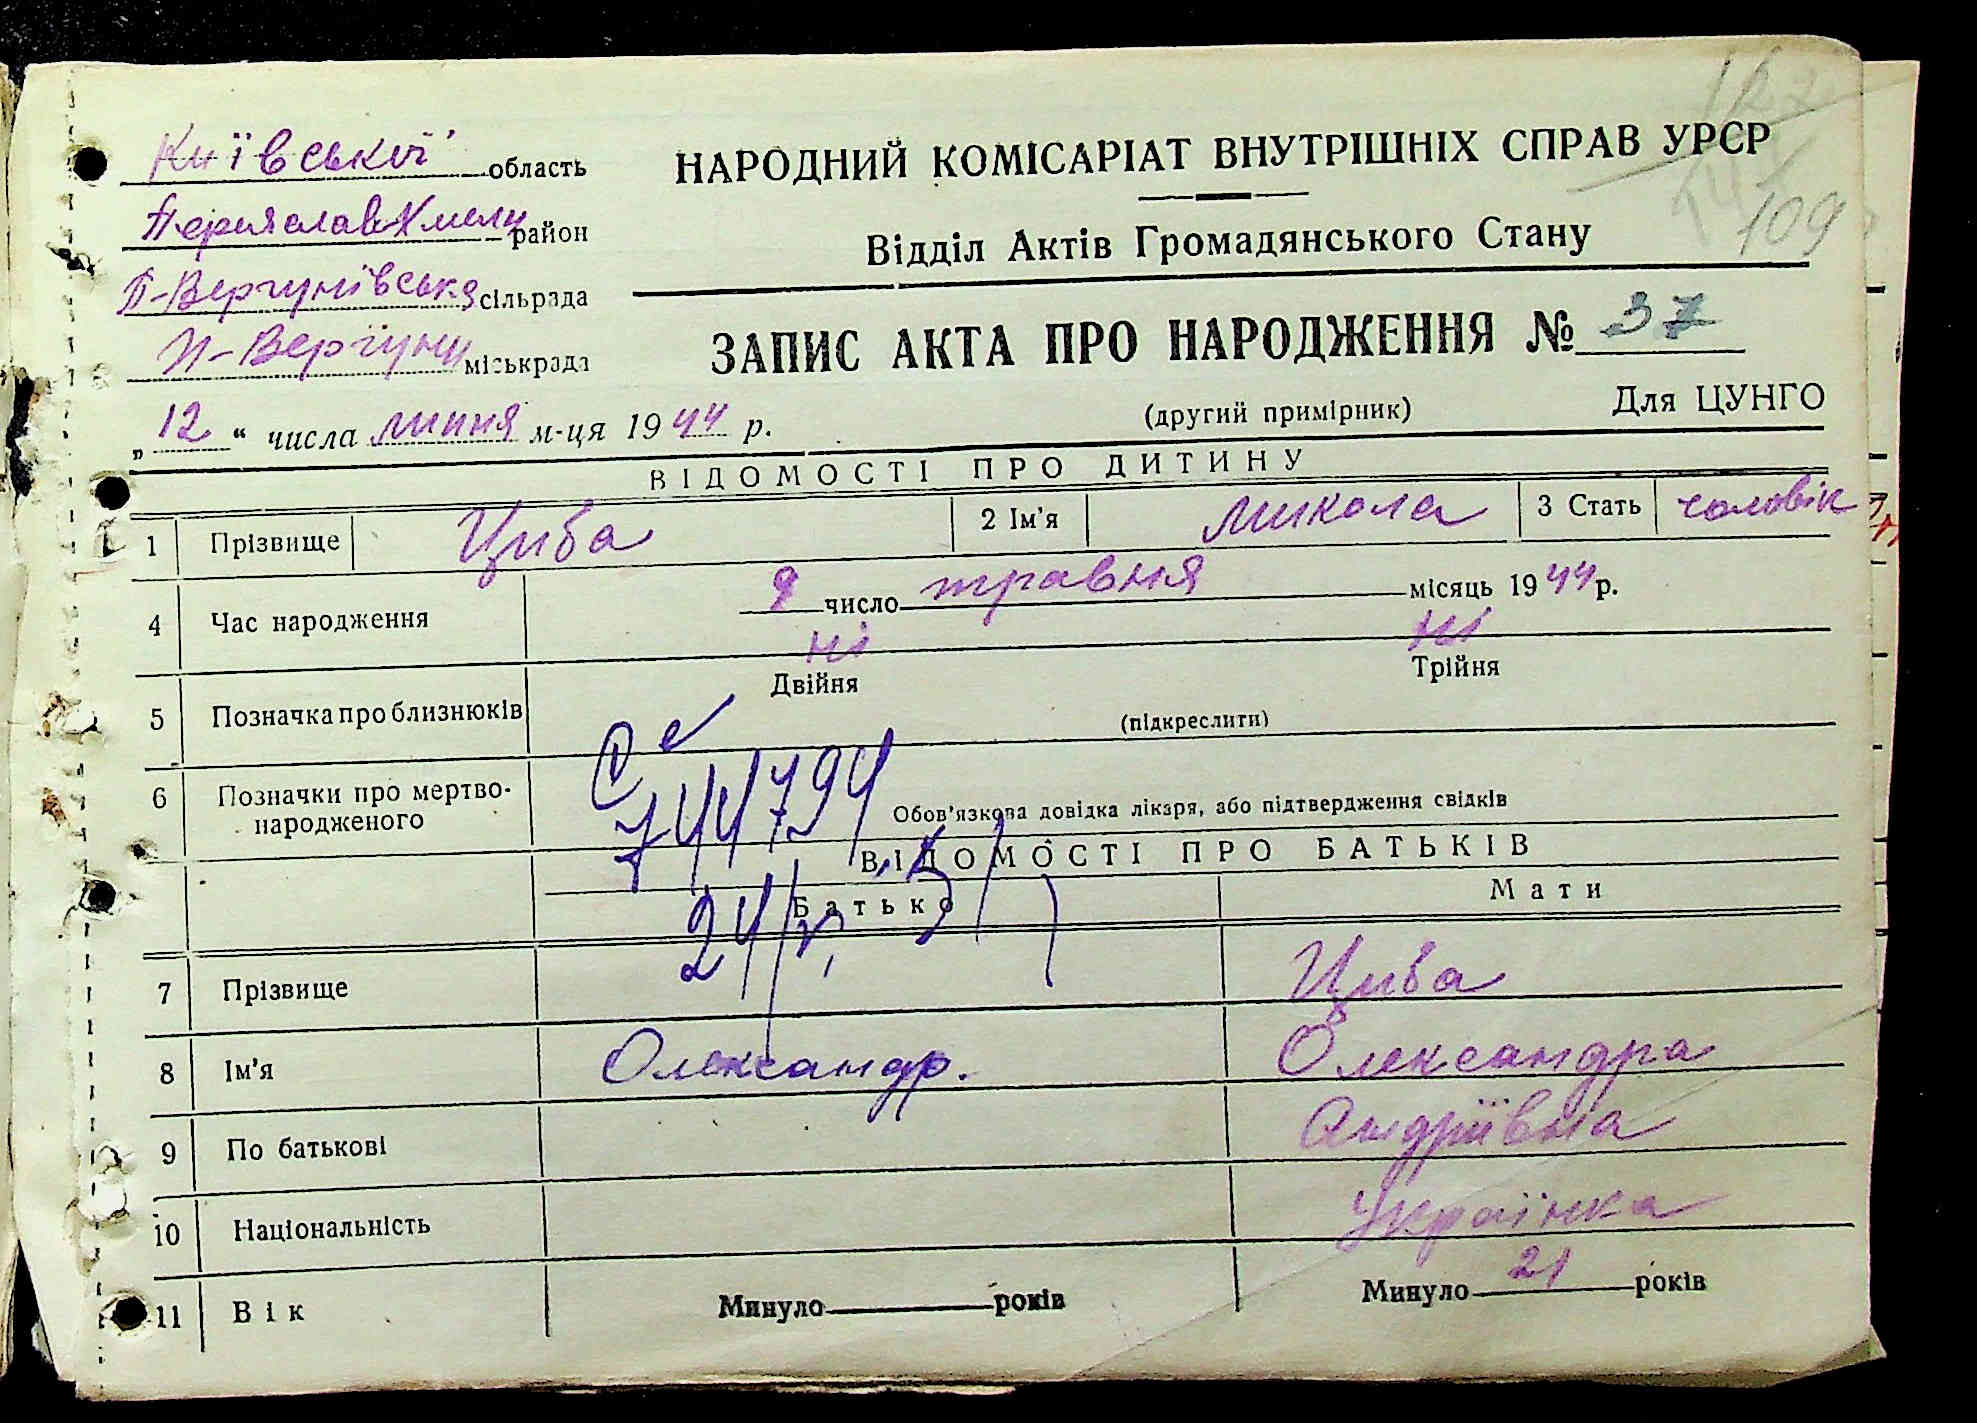 Київської область
НАРОДНИЙ КОМІСАРІАТ ВНУТРІШНІХ СПРАВ УРСР
Переяслав-Хмелн район
109
Відділ Актів Громадянського Стану
П-Вергунівська сільрада
ЗАПИС АКТА ПРО НАРОДЖЕННЯ № 37
П-Вергуни міськрада
(другий примірник) Для ЦУНГО
„ 12 “ числа липня м-ця 1944 р.
ВІДОМОСТІ ПРО ДИТИНУ
1 Прізвище Циба 2 Ім'я Микола 3 Стать чоловік
4 Час народження 9 число травня місяць 1944 р.
ні ні
Двійня Трійня
5 Позначка про близнюків (підкреслити)
6 Позначки про мертво-
народженого
744794
Обов'язкова довідка лікаря, або підтвердження свідків
ВІДОМОСТІ ПРО БАТЬКІВ
Батько Мати
7 Прізвище Циба
8 Ім'я Олександр. Олександра
9 По батькові Андріївна
10 Національність Українка
11 Вік Минуло років Минуло 21 років